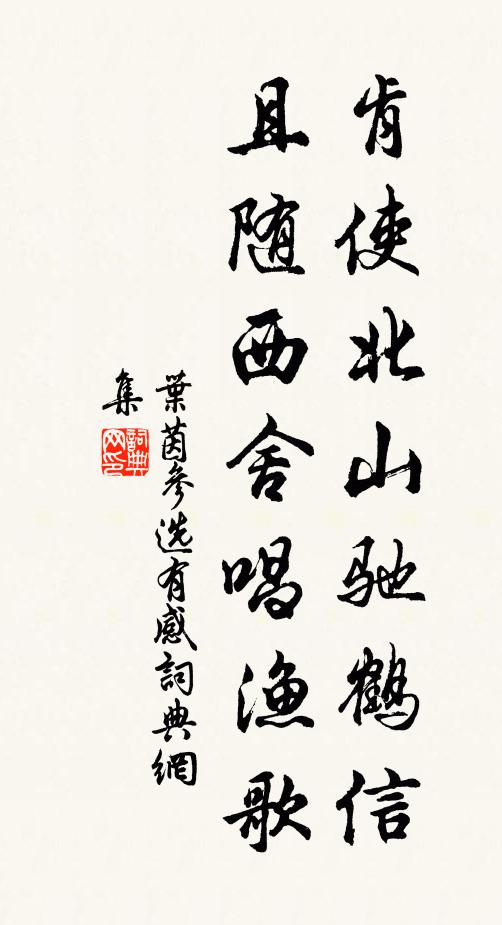 肯使北山驰鹤信
且随西舍唱渔歌
葉茵參选有感詞典網
集
詞典
网印